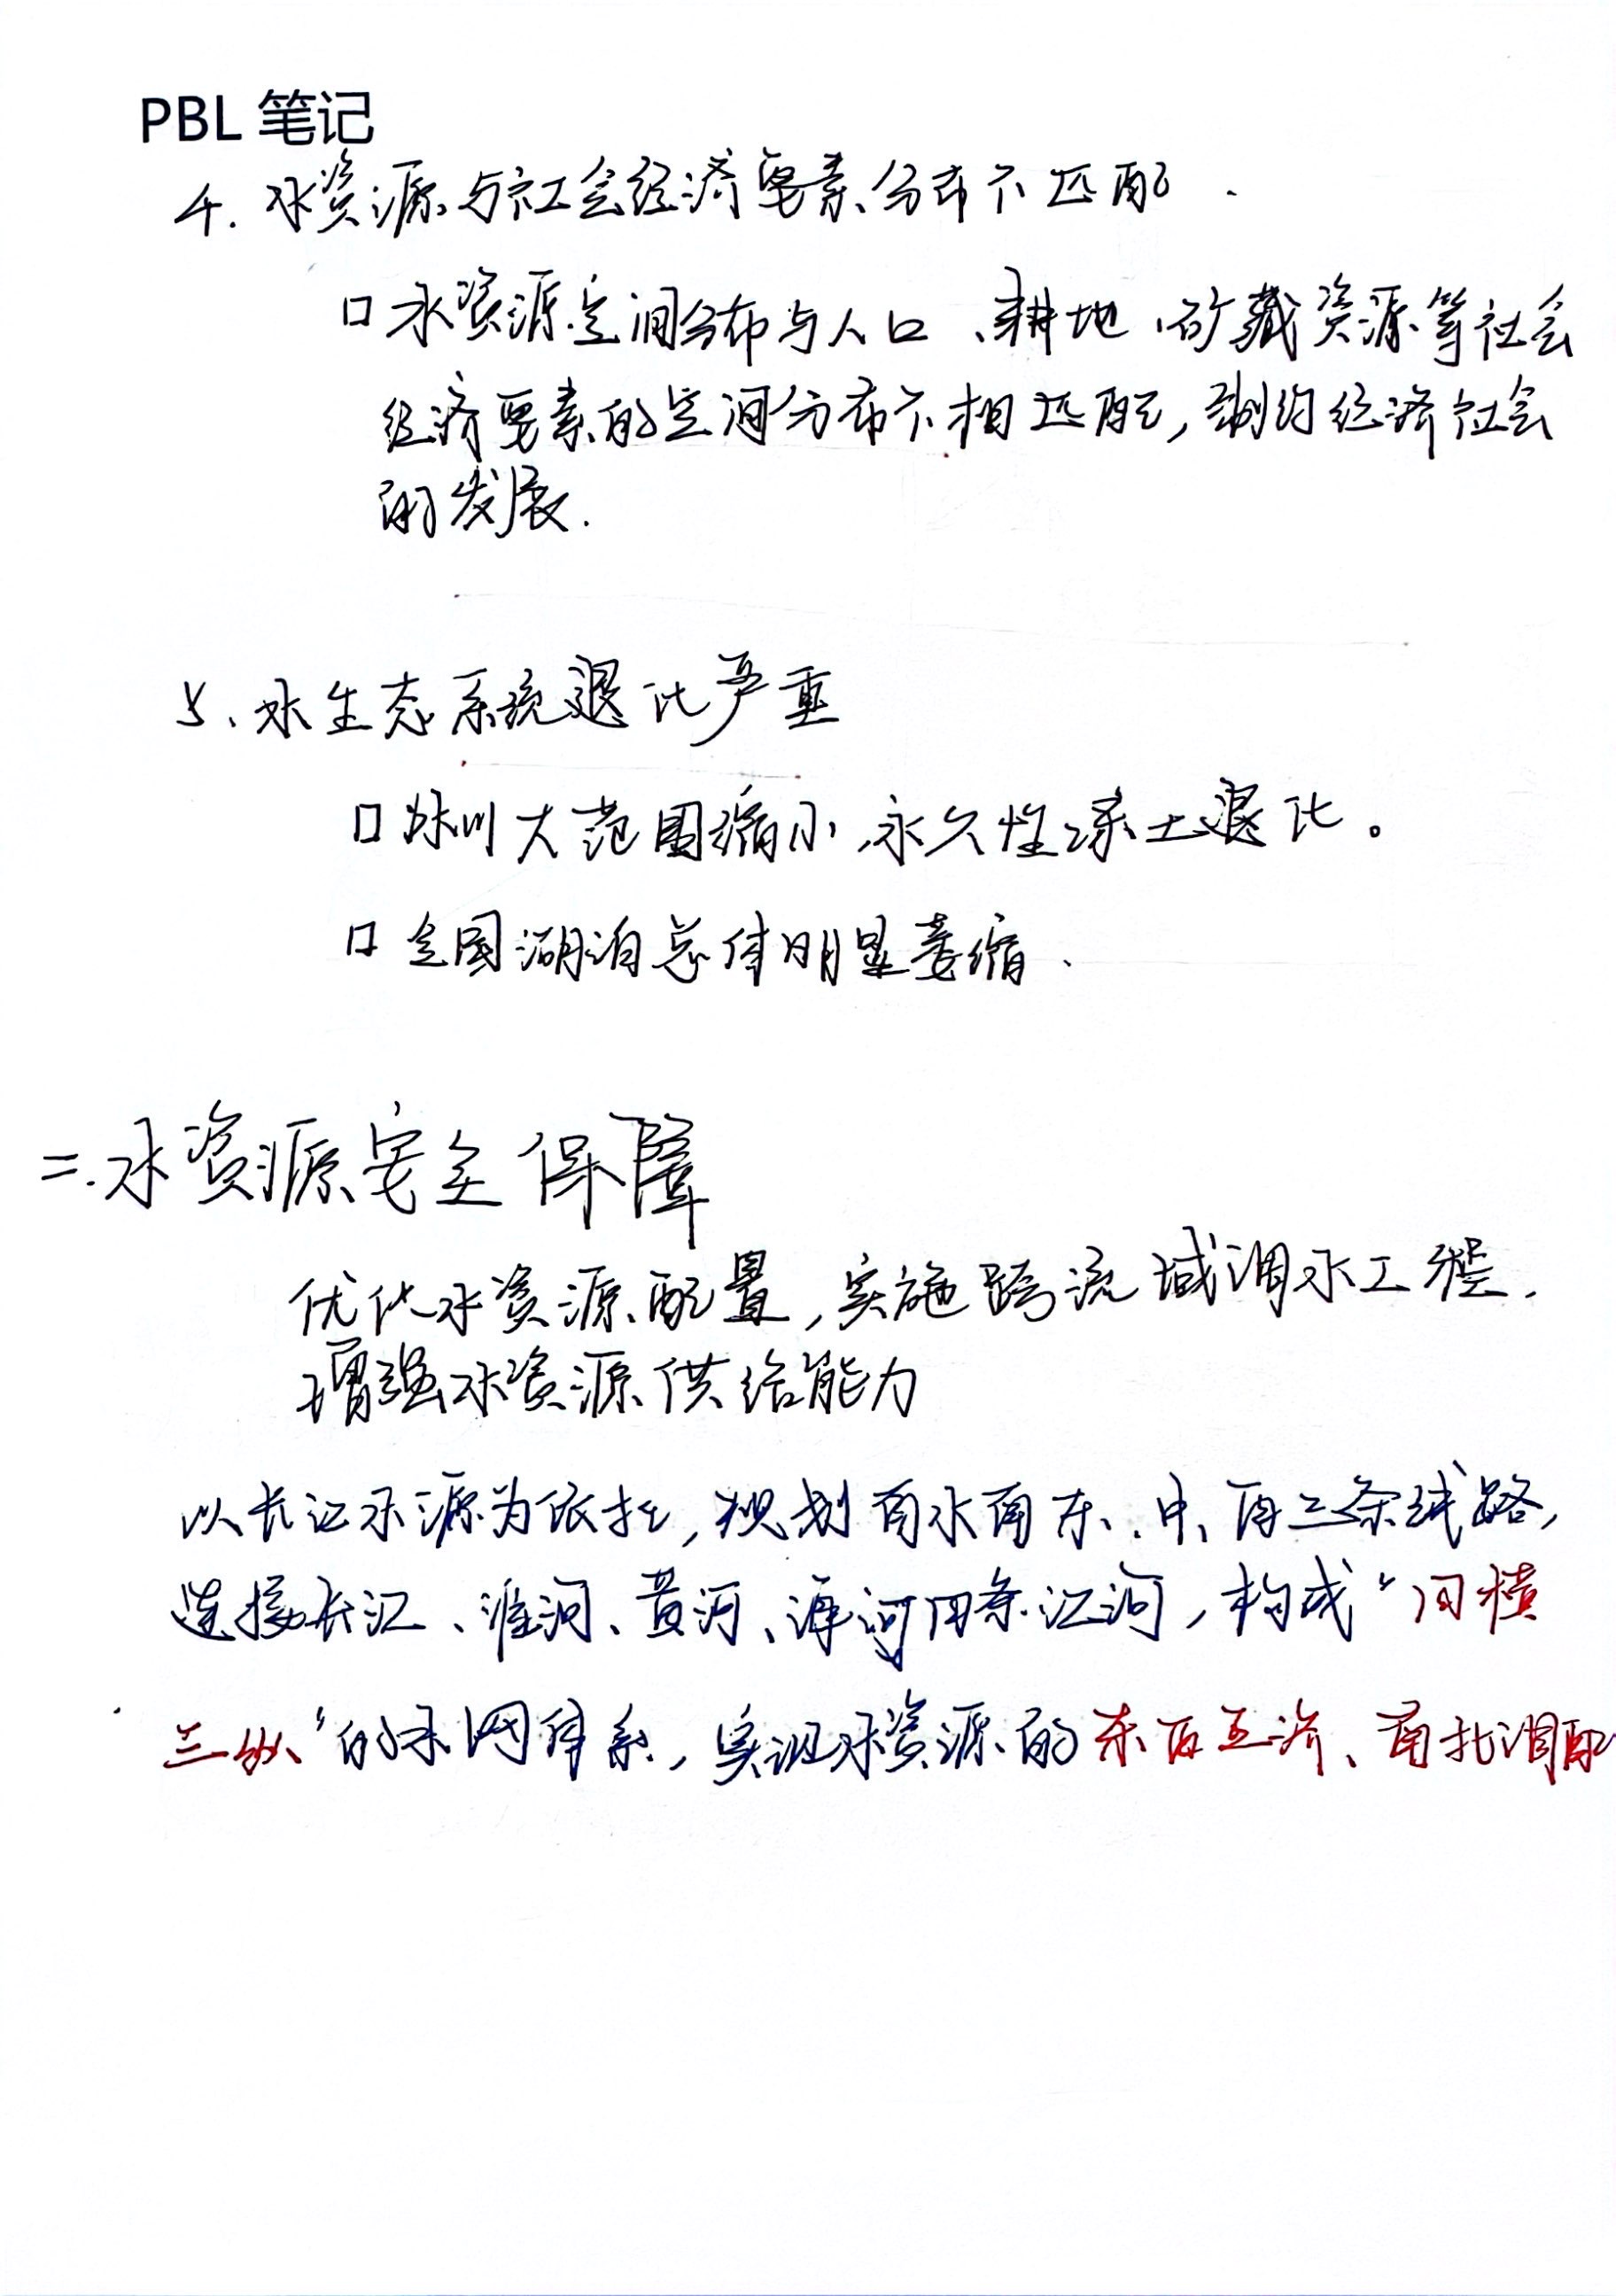 PBL 笔记
4. 水资源与社会经济要素分布不匹配.
口水资源空间分布与人口、耕地、矿藏资源等社会
经济要素的空间分布不相匹配,制约经济社会
的发展.
5、水生态系统退化严重
口冰川大范围缩小,永久性冻土退化。
口全国湖泊总体明显萎缩、
二.水资源安全保障
优化水资源配置,实施跨流域调水工程,
增强水资源供给能力
以长江水源为依托,规划南水南东、中、西三条线路,
连接长江、淮河、黄河、海河四条江河,构成“四横
三纵”的水网体系,实现水资源的东西互济、南北调配